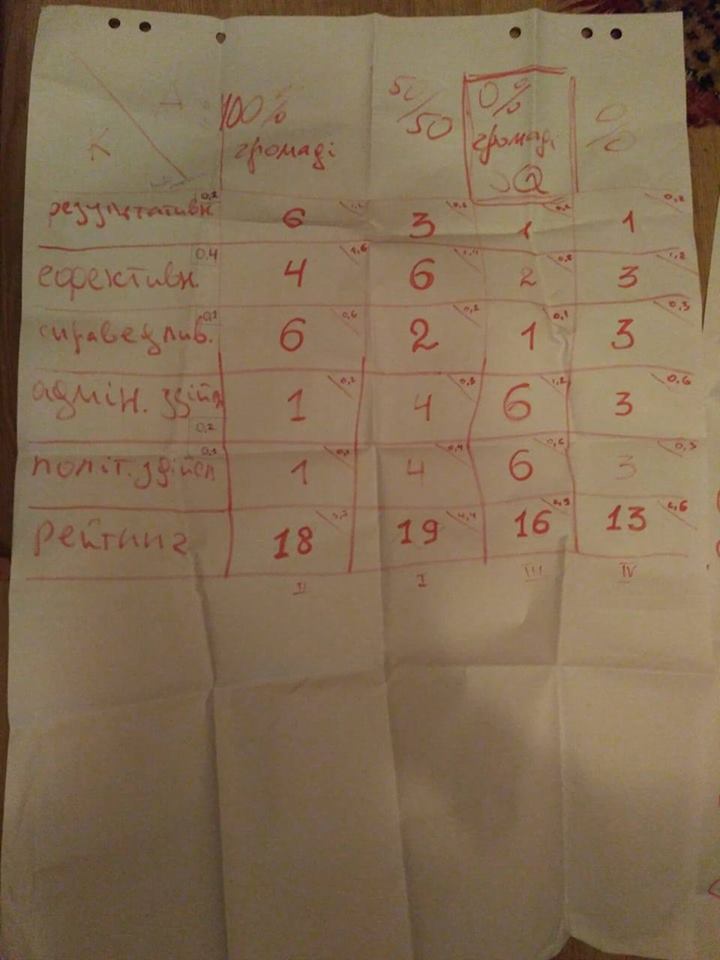 К А 100% громаді 50/50 0% громаді SQ %
результативн. 0,2 6 1,2 3 0,6 1 0,2 1 0,2
ефективн. 0,4 4 1,6 6 2,4 2 0,8 3 1,2
справедлив. 0,1 6 0,6 2 0,2 1 0,1 3 0,3
адмін. здійсн 0,2 1 0,2 4 0,8 6 1,2 3 0,6
політ. здійсн 0,1 1 0,1 4 0,4 6 0,6 3 0,3
Рейтинг 18 19 4,4 16 13 2,6
II I III IV